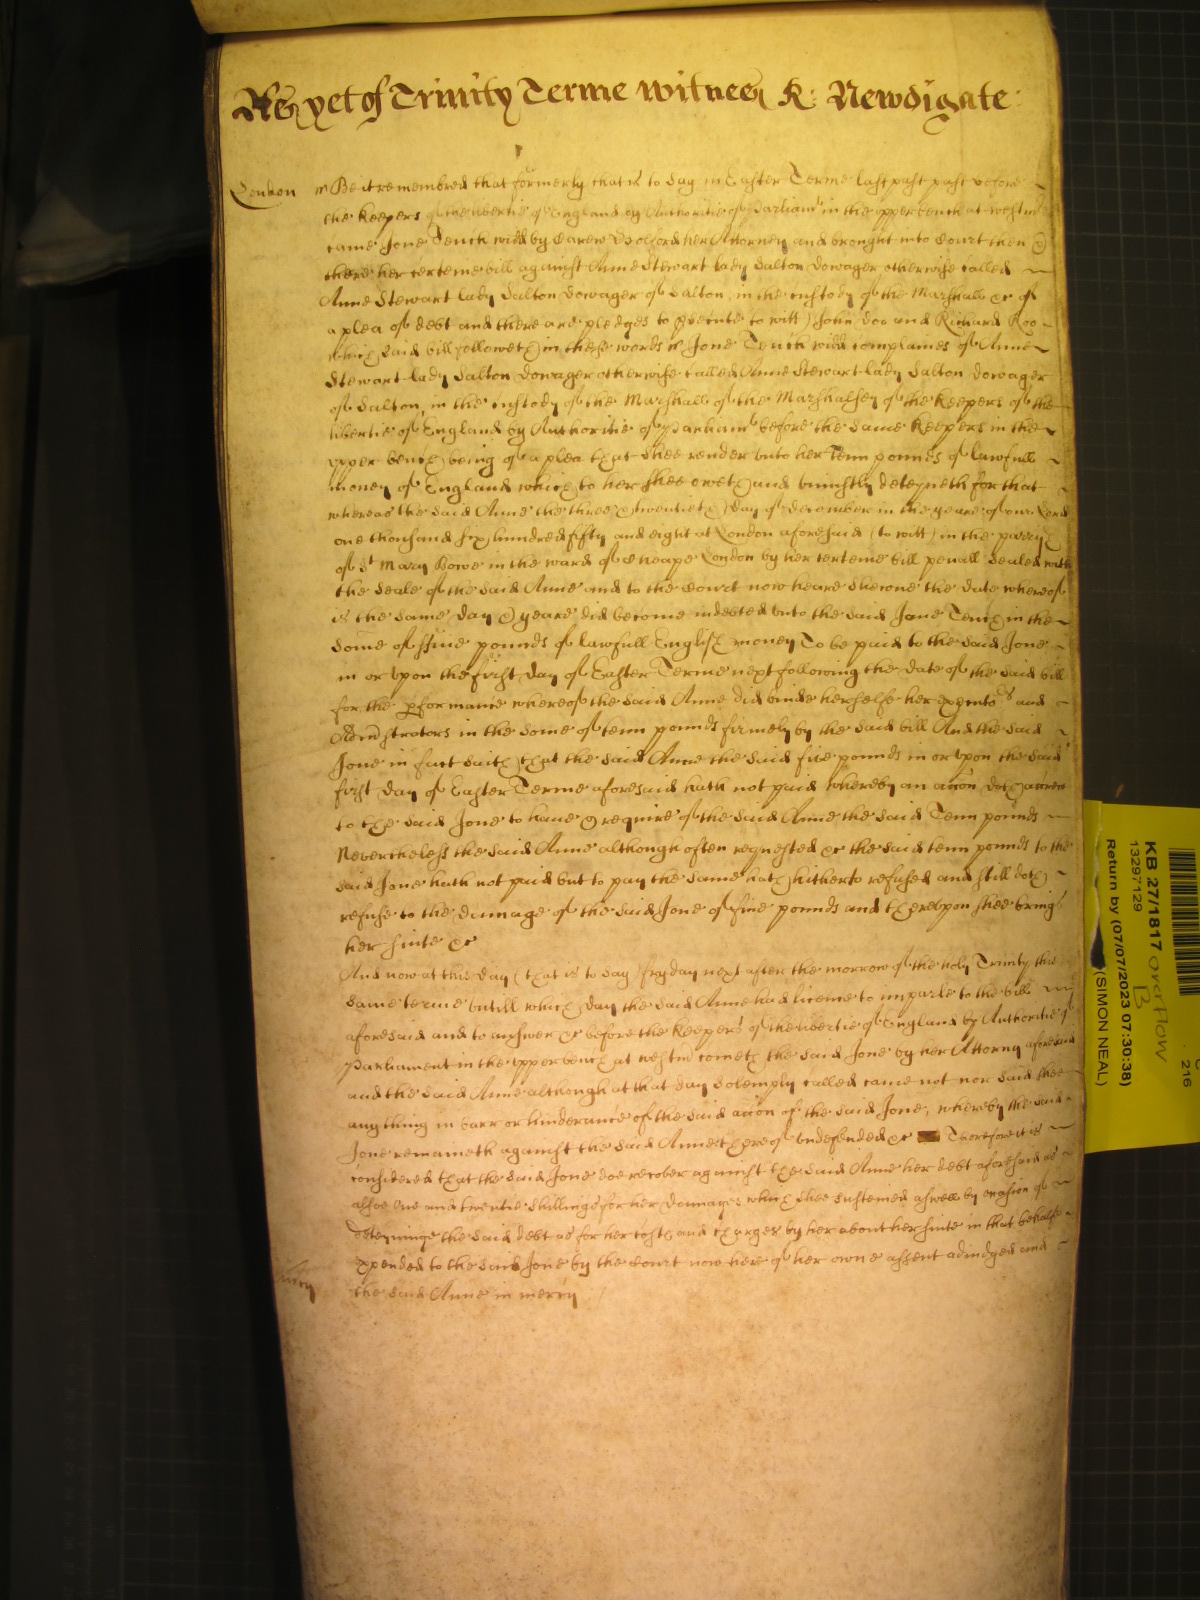 As yet of Trinity Terme Witnes R: Newdigate
London ss Be it remembred that formerly that is to say in Easter Terme last past past before
the keepers of the libertie of England by Authoritie of Parliamt in the upper bench at westm
came Jone Tench widd by Carew his Attorney and brought into Court then &
there her certeine bill against Anne Stewart lady Dalton dowager otherwise called
Anne Stewart lady Dalton dowager of Dalton, in the custody of the Marshall &c of
a plea of debt and there are pledges to psecute to witt) John Doo and Richard Roo
which said bill followeth in these words ss Jone Tench widd complaines of Anne
Stewart lady Dalton dowager otherwise called Anne Stewart lady Dalton dowager
of Dalton, in the custody of the Marshall of the Marshalsey of the keepers of the
libertie of England by Authoritie of Parliamt before the same keepers in the
upper bench being of a plea that shee render unto her Tenn pounds of lawfull
money of England which to her shee oweth and uniustly deteyneth for that
whereas the said Anne the three & twentieth day of december in the yeare of our Lord
one thousand six hundred fifty and eight at London aforesaid (to witt) in the parish
of St Mary Bowe in the ward of Cheape London by her certeine bill penall sealed with
the seale of the said Anne and to the Court now heare shewne the date whereof
is the same day & yeare did become indebted unto the said Jone Tench in the
some of ffive pounds of lawfull English money To be paid to the said Jone
in or upon the first day of Easter Terme next following the date of the said bill
for the pformance whereof the said Anne did binde herselfe her executors and
Admstrators in the some of tenn pounds firmely by the said bill And the said
Jone in fact saith that the said Anne the said five pounds in or upon the said
first day of Easter Terme aforesaid hath not paid whereby an accon doth accrew
to the said Jone to have & require of the said Anne the said Tenn pounds
Nevertheless the said Anne although often requested &c the said tenn pounds to the
said Jone hath not paid but to pay the same hath hitherto refused and still doth
refuse to the damage of the said Jone of five pounds and thereupon shee brings
her suite &c
And now at this day (that is to say) fryday next after the morrow of the holy Trinity this
same terme untill which day the said Anne had licence to imparle to the bill
aforesaid and to answer &c before the keepers of the libertie of England by Authoritie of
Parliament in the upper bench at westm cometh the said Jone by her Attorny aforesaid
and the said Anne although at that day solemply called came not nor said shee
any thing in barr or hinderance of the said accon of the said Jone, whereby the said
Jone remaineth against the said Anne thereof undefended &c Therefore it is
considered that the said Jone doe recover against the said Anne her debt aforesaid as
alsoe one and twentie shillings for her damages which shee susteined aswell by occasion of
deteyninge the said debt as for her costs and charges by her about her suite in that behalfe
expended to the said Jone by the Court now here of her owne assent adiudged and
mercy the said Anne in mercy
KB 27/1817 overflow B
13297129
Return by (07/07/2023 07:30:38)
(SIMON NEAL)
216